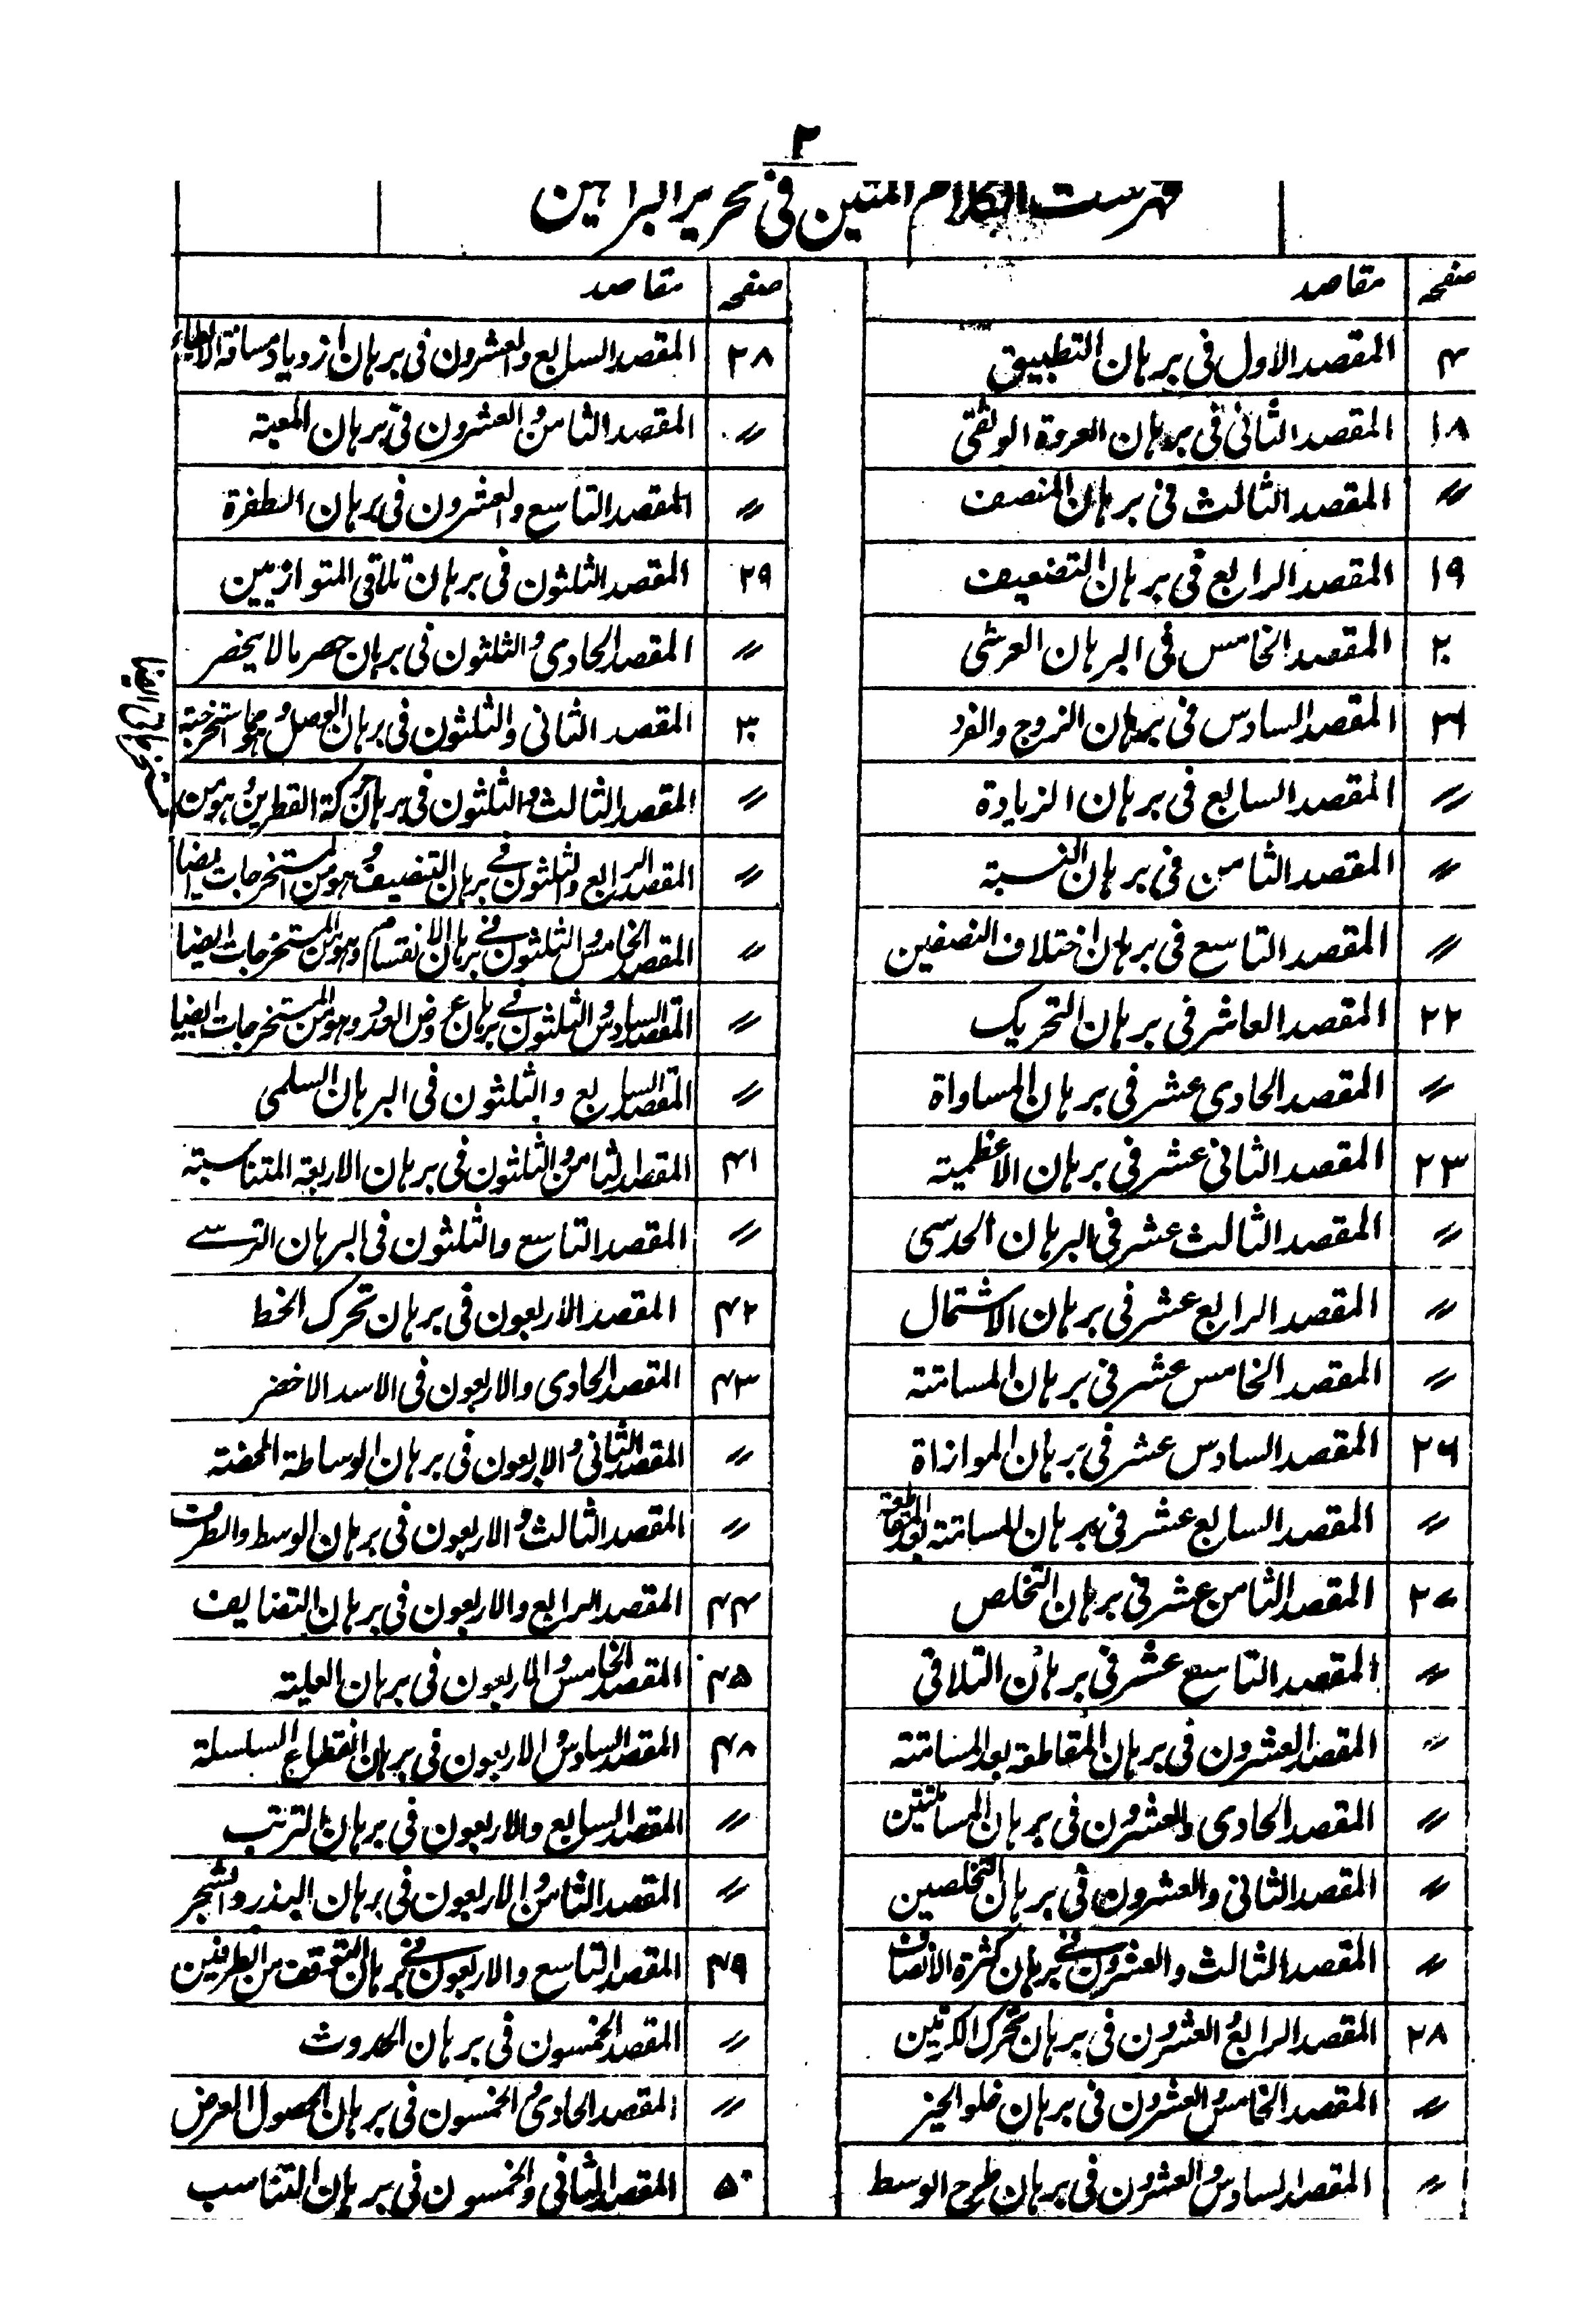 ٢
فهرست الكلام المتين فى تحرير البراهين
صفحه مقاصد
۴ المقصد الاول فى برهان التطبيق
١٨ المقصد الثانى فى برهان العروة الوثقى
〃 المقصد الثالث فى برهان المنصف
١٩ المقصد الرابع فى برهان التضعيف
٢٠ المقصد الخامس فى البرهان العرشى
٢١ المقصد السادس فى برهان الزوج والفرد
〃 المقصد السابع فى برهان الزيادة
〃 المقصد الثامن فى برهان النسبة
〃 المقصد التاسع فى برهان اختلاف النصفين
٢٢ المقصد العاشر فى برهان التحريك
〃 المقصد الحادى عشر فى برهان المساواة
٢٣ المقصد الثانى عشر فى برهان الاعظمية
〃 المقصد الثالث عشر فى البرهان الحدسى
〃 المقصد الرابع عشر فى برهان الاشتمال
〃 المقصد الخامس عشر فى برهان المسامتة
٢٦ المقصد السادس عشر فى برهان الموازاة
〃 المقصد السابع عشر فى برهان المسامتة بعد المقاطعة
٢٧ المقصد الثامن عشر فى برهان التخلص
〃 المقصد التاسع عشر فى برهان التلاقى
〃 المقصد العشرون فى برهان المقاطعة بعد المسامتة
〃 المقصد الحادى والعشرون فى برهان المسامتتين
〃 المقصد الثانى والعشرون فى برهان التخلصين
〃 المقصد الثالث والعشرون فى برهان كثرة الانصاف
٢٨ المقصد الرابع والعشرون فى برهان تحرك الكرتين
〃 المقصد الخامس والعشرون فى برهان خلو الحيز
〃 المقصد السادس والعشرون فى برهان طرح الوسط
صفحه مقاصد
٢٨ المقصد السابع والعشرون فى برهان ازدياد مسافة
〃 المقصد الثامن والعشرون فى برهان المعية
〃 المقصد التاسع والعشرون فى برهان الطفرة
٢٩ المقصد الثلثون فى برهان تلاقى المتوازيين
〃 المقصد الحادى والثلثون فى برهان حصر مالا ينحصر
٣٠ المقصد الثانى والثلثون فى برهان الفصل وهو مما استخرجته
〃 المقصد الثالث والثلثون فى برهان حركة القطرين وهو من
مستخرجاتى ايضا
〃 المقصد الرابع والثلثون فى برهان التنصيف وهو من المستخرجات ايضا
〃 المقصد الخامس والثلثون فى برهان الانقسام وهو من المستخرجات ايضا
〃 المقصد السادس والثلثون فى برهان عروض العدد وهو من المستخرجات ايضا
〃 المقصد السابع والثلثون فى البرهان السلمى
۴١ المقصد الثامن والثلثون فى برهان الاربعة المتناسبة
〃 المقصد التاسع والثلثون فى البرهان الترسى
۴٢ المقصد الاربعون فى برهان تحرك الخط
۴٣ المقصد الحادى والاربعون فى الاسد الاخضر
〃 المقصد الثانى والاربعون فى برهان الوساطة المحضة
〃 المقصد الثالث والاربعون فى برهان الوسط والطرف
۴۴ المقصد الرابع والاربعون فى برهان التضايف
۴۵ المقصد الخامس والاربعون فى برهان العلية
۴٨ المقصد السادس والاربعون فى برهان انقطاع السلسلة
〃 المقصد السابع والاربعون فى برهان الترتب
〃 المقصد الثامن والاربعون فى برهان البذر والشجر
۴٩ المقصد التاسع والاربعون فى برهان التوقف من الطرفين
〃 المقصد الخمسون فى برهان الحدوث
〃 المقصد الحادى والخمسون فى برهان الحصول العرضى
۵٠ المقصد الثانى والخمسون فى برهان التناسب